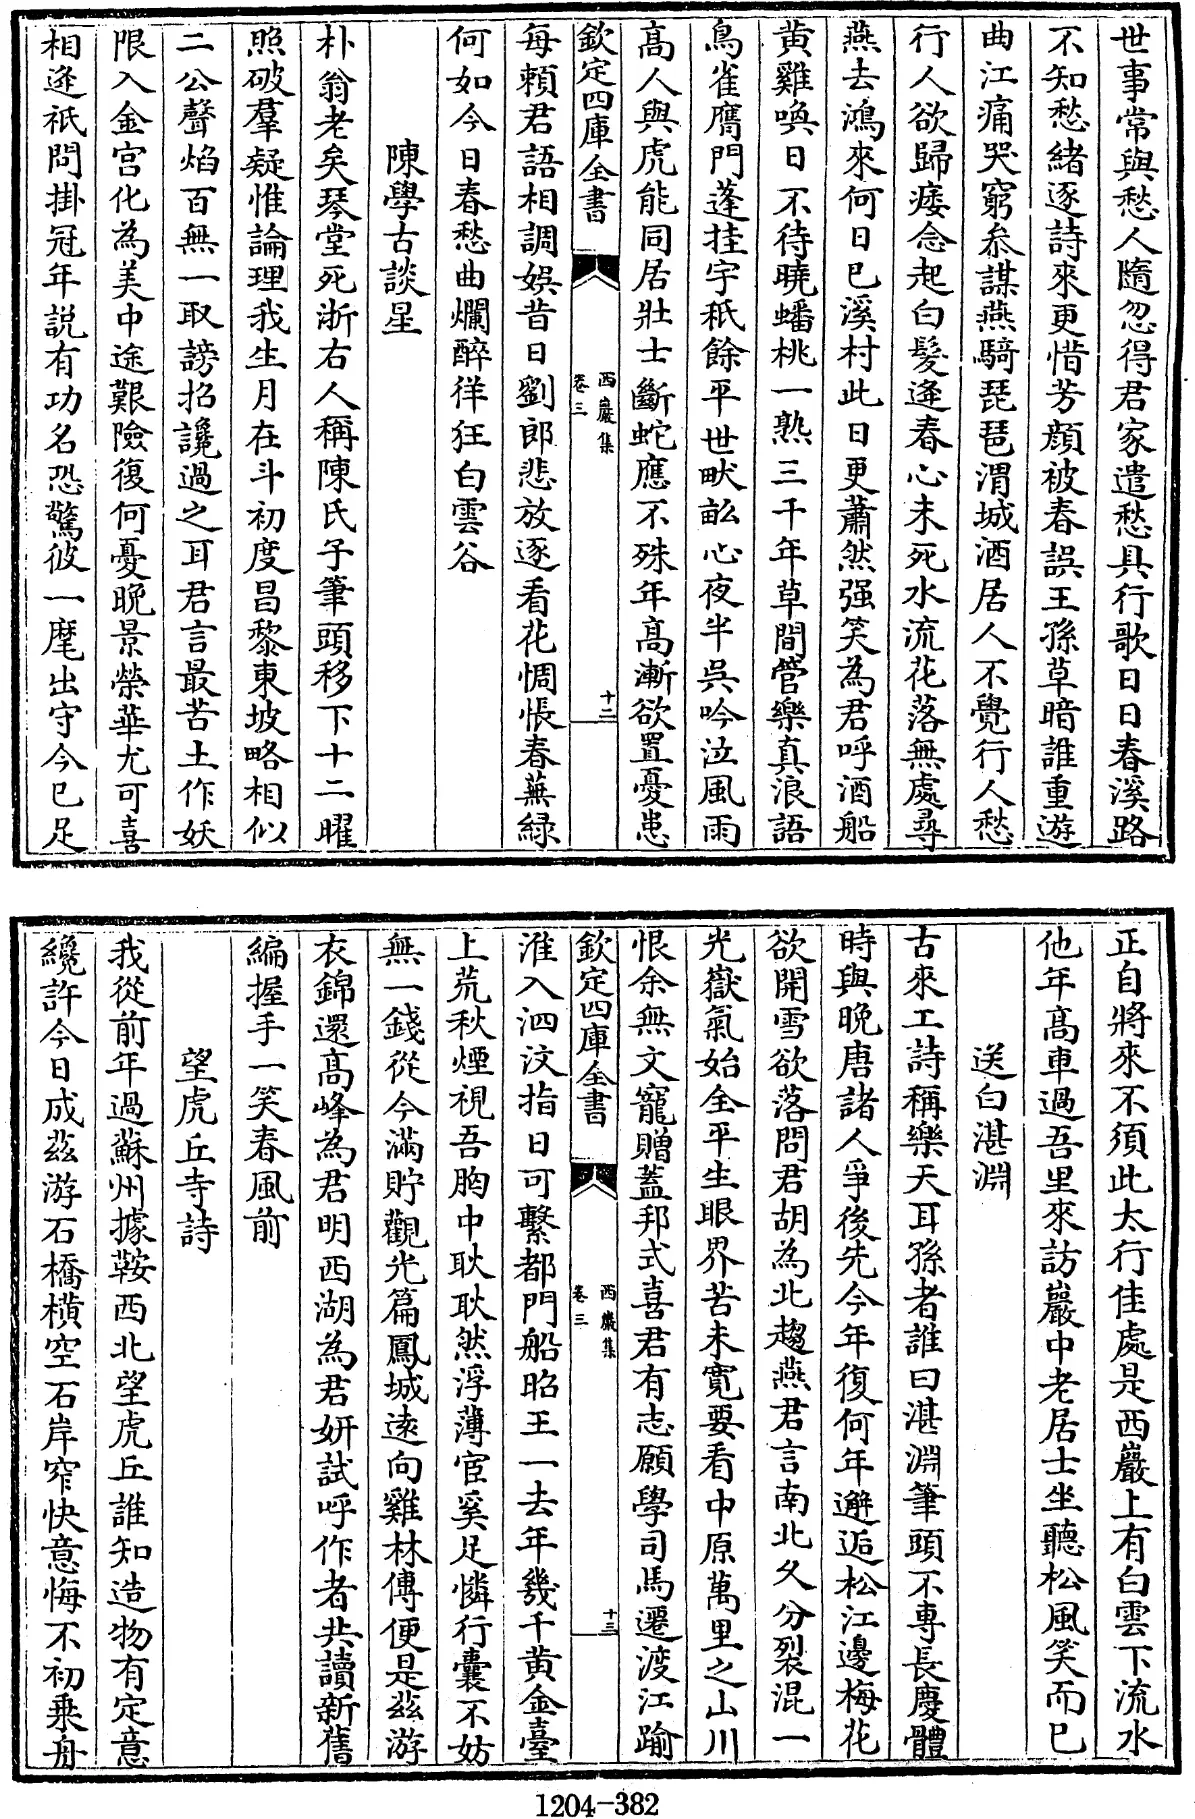 世事常與愁人隨忽得君家遣愁具行歌日日春溪路
不知愁緒逐詩來更惜芳顔被春誤王孫草暗誰重遊
曲江痛哭窮叅謀燕騎琵琶渭城酒居人不覺行人愁
行人欲歸痿念起白髮逢春心未死水流花落無處尋
燕去鴻來何日已溪村此日更蕭然强笑為君呼酒船
黄雞喚日不待曉蟠桃一熟三千年草間管樂真浪語
鳥雀膺門蓬挂宇秖餘平世畎畝心夜半呉吟泣風雨
髙人與虎能同居壯士斷蛇應不殊年髙漸欲置憂患
欽定四庫全書
西巖集
卷三
十二
每頼君語相調娯昔日劉郎悲放逐看花惆悵春蕪緑
何如今日春愁曲爛醉徉狂白雲谷
陳學古談星
朴翁老矣琴堂死浙右人稱陳氏子筆頭移下十二曜
照破羣疑惟論理我生月在斗初度昌黎東坡略相似
二公聲焰百無一取謗招讒過之耳君言最苦土作妖
限入金宫化為美中途艱險復何憂晚景榮華尤可喜
相逢祇問掛冠年説有功名恐驚彼一麾出守今已足
正自將來不須此太行佳處是西巖上有白雲下流水
他年髙車過吾里來訪巖中老居士坐聽松風笑而已
送白湛淵
古來工詩稱樂天耳孫者誰曰湛淵筆頭不專長慶體
時與晚唐諸人爭後先今年復何年邂逅松江邊梅花
欲開雪欲落問君胡為北趨燕君言南北久分裂混一
光嶽氣始全平生眼界苦未寛要看中原萬里之山川
恨余無文寵贈蓋邦式喜君有志願學司馬遷渡江踰
欽定四庫全書
西巖集
卷三
十三
淮入泗汶指日可繫都門船昭王一去年幾千黄金臺
上荒秋煙視吾胸中耿耿然浮薄宦奚足憐行囊不妨
無一錢從今滿貯觀光篇鳳城逺向雞林傳便是兹游
衣錦還髙峰為君明西湖為君妍試呼作者共讀新舊
編握手一笑春風前
望虎丘寺詩
我從前年過蘇州據鞍西北望虎丘誰知造物有定意
纔許今日成兹游石橋横空石岸窄快意悔不初乗舟
1204-382